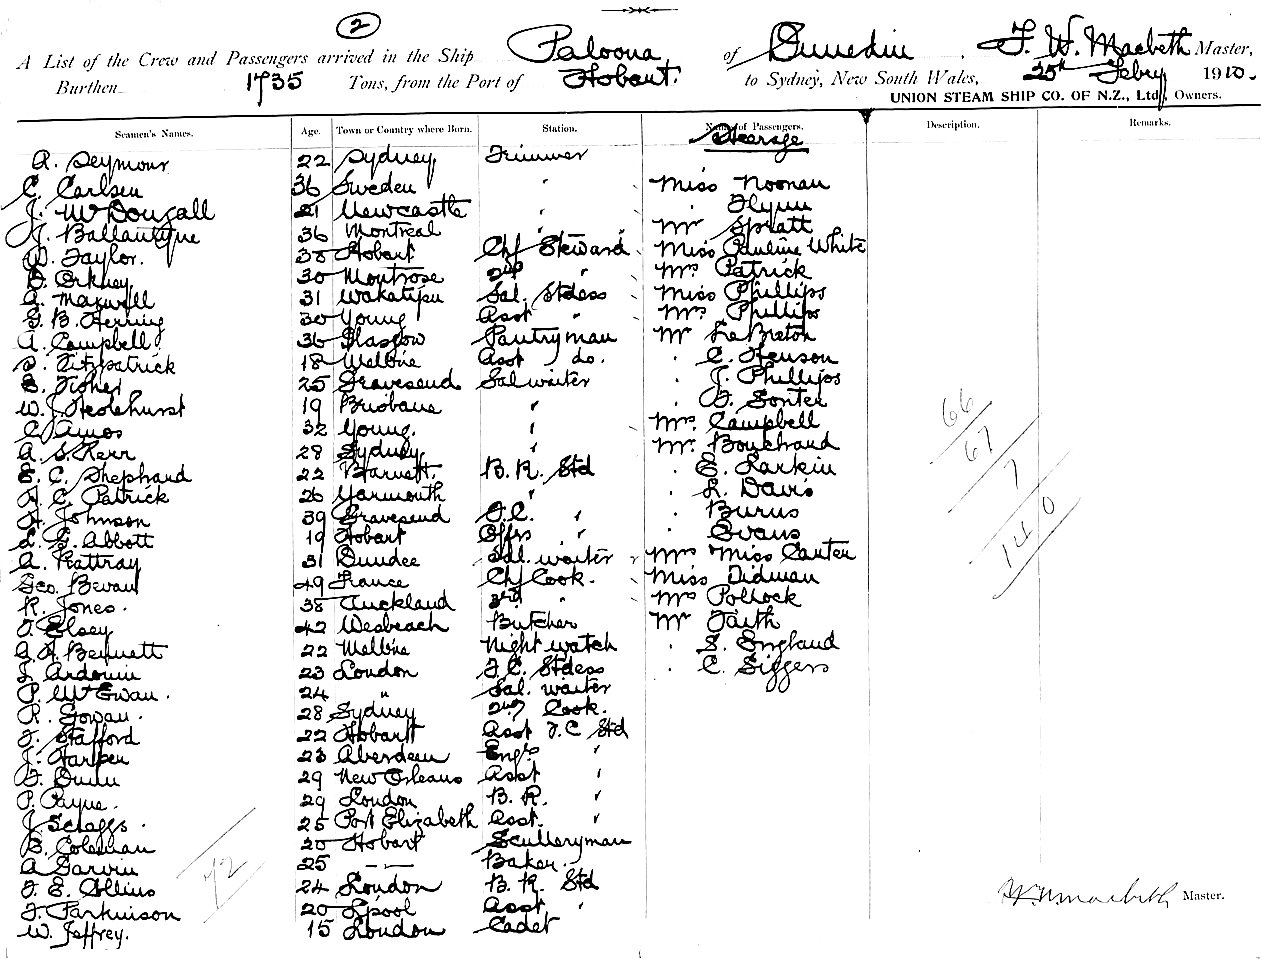 2
A List of the Crew and Passengers arrived in the Ship Paloona, of Dunedin, F. W. Macbeth Master,
Burthen 1735 Tons, from the Port of Hobart. to Sydney, New South Wales, 25th Febry 1910.
UNION STEAM SHIP CO. OF N.Z., Ltd., Owners.
Seamen's Names. Age. Town or Country where Born. Station. Names of Passengers. Description. Remarks.
Steerage
A. Seymour 22 Sydney Trimmer
C. Carlsen 36 Sweden " Miss Noonan
J. McDougall 21 Newcastle " " Flynn
J. Ballantyne 36 Montreal " Mr Spratt
W. Taylor. 38 Hobart Chf Steward Miss Pauline White
D. Orkney 30 Montrose 2nd " Mrs Patrick
A. Maxwell 31 Wakatipu Sal. Stdess Miss Phillips
G. B. Herring 30 Young Asst " Mrs Phillips
A. Campbell 36 Glasgow Pantryman Mr Le Breton
D. Fitzpatrick 18 Melbne Asst do. " C. Henson
E. Fisher 25 Gravesend Sal waiter " J. Phillips
W. J. Hedehurst 19 Brisbane " " Sonter
C. Amos 32 Young. " Mrs. Campbell
A. S. Kerr 28 Sydney " Mr.
E. C. Shephard 22 Barnett. B. R. Std " E. Larkin
H. C. Patrick 26 Yarmouth " " L. Davis
H. Johnson 39 Gravesend F.C. " " Burns
L. G. Abbott 19 Hobart Offrs " " Evans
A. Rattray 31 Dundee Sal. waiter Mrs Miss Carter
Geo. Bevan 49 France Chf Cook. Miss Didman
R. Jones. 38 Auckland 3rd " Mrs Pollock
F. Elsey 42 Wesbeach Butcher Mr Faith
A. H. Bennett 22 Melbne Night watch " S. England
J. Ardouin 23 London F.C. Stdess " C. Siggers
P. McEwan. 24 " Sal. waiter
R. Gowan. 28 Sydney 2nd Cook.
F. Stafford 22 Hobart Asst F.C Std
J. Harper 23 Aberdeen Engrs "
29 New Orleans Asst "
P. Payne. 29 London B. R. "
J. Scraggs. 25 Port Elizabeth Asst. "
B. Coleman 20 Hobart Sculleryman
A Garvin 25 " Baker.
F. E. Collins 24 London B. R. Std
F. Parkinson 20 Lpool Asst "
W. Jeffrey. 15 London Cadet
66
67
7
140
42
Macbeth Master.